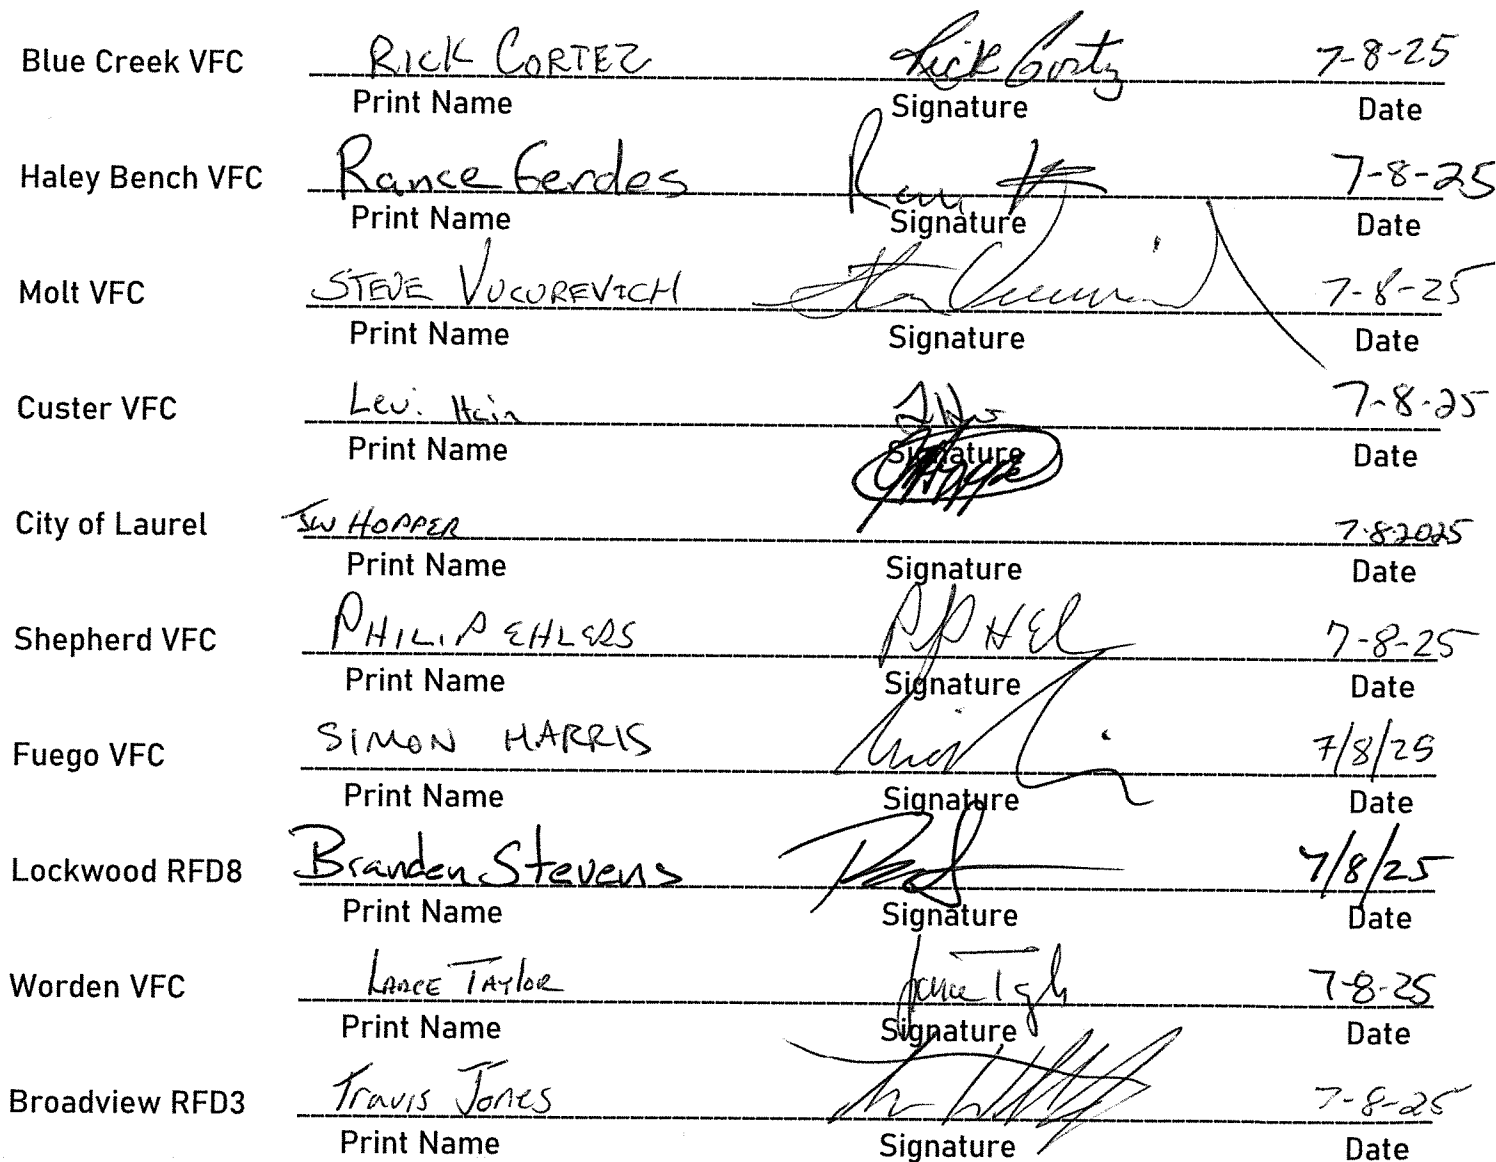 Blue Creek VFC RICK CORTEZ Rick Cortz 7-8-25
Print Name Signature Date
Haley Bench VFC Rance Gerdes 7-8-25
Print Name Signature Date
Molt VFC STEVE VUCUREVICH 7-8-25
Print Name Signature Date
Custer VFC Levi Hain 7-8-25
Print Name Signature Date
City of Laurel JW HOPPER 7-8-2025
Print Name Signature Date
Shepherd VFC PHILIP EHLERS 7-8-25
Print Name Signature Date
Fuego VFC SIMON HARRIS 7/8/25
Print Name Signature Date
Lockwood RFD8 Branden Stevens 7/8/25
Print Name Signature Date
Worden VFC LANCE TAYLOR 7-8-25
Print Name Signature Date
Broadview RFD3 Travis Jones 7-8-25
Print Name Signature Date